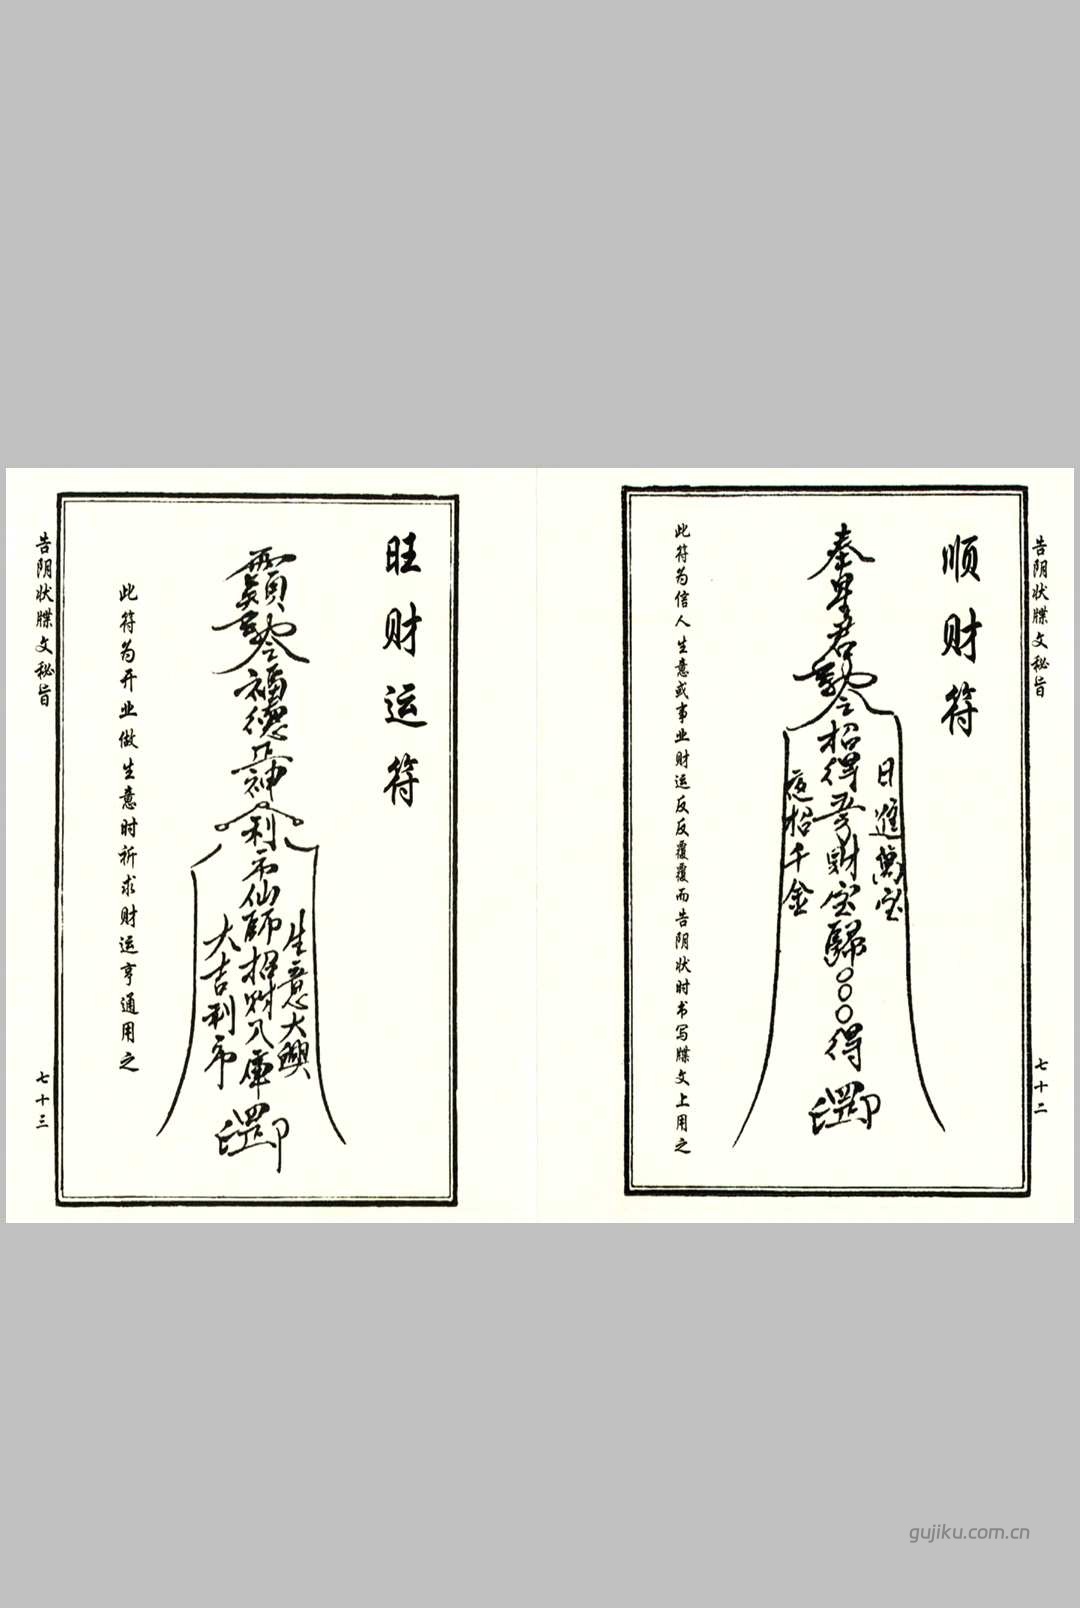 告阴状牒文秘旨
七十二
顺财符
日進萬宝
奉星君敕令招得五方财宝歸○○○得
夜招千金
此符为信人生意或事业财运反反覆覆而告阴状时书写牒文上用之
旺财运符
生意大興
敕令福德正神利市仙师招财入庫
大吉利市
此符为开业做生意时祈求财运亨通用之
告阴状牒文秘旨
七十三
gujiku.com.cn